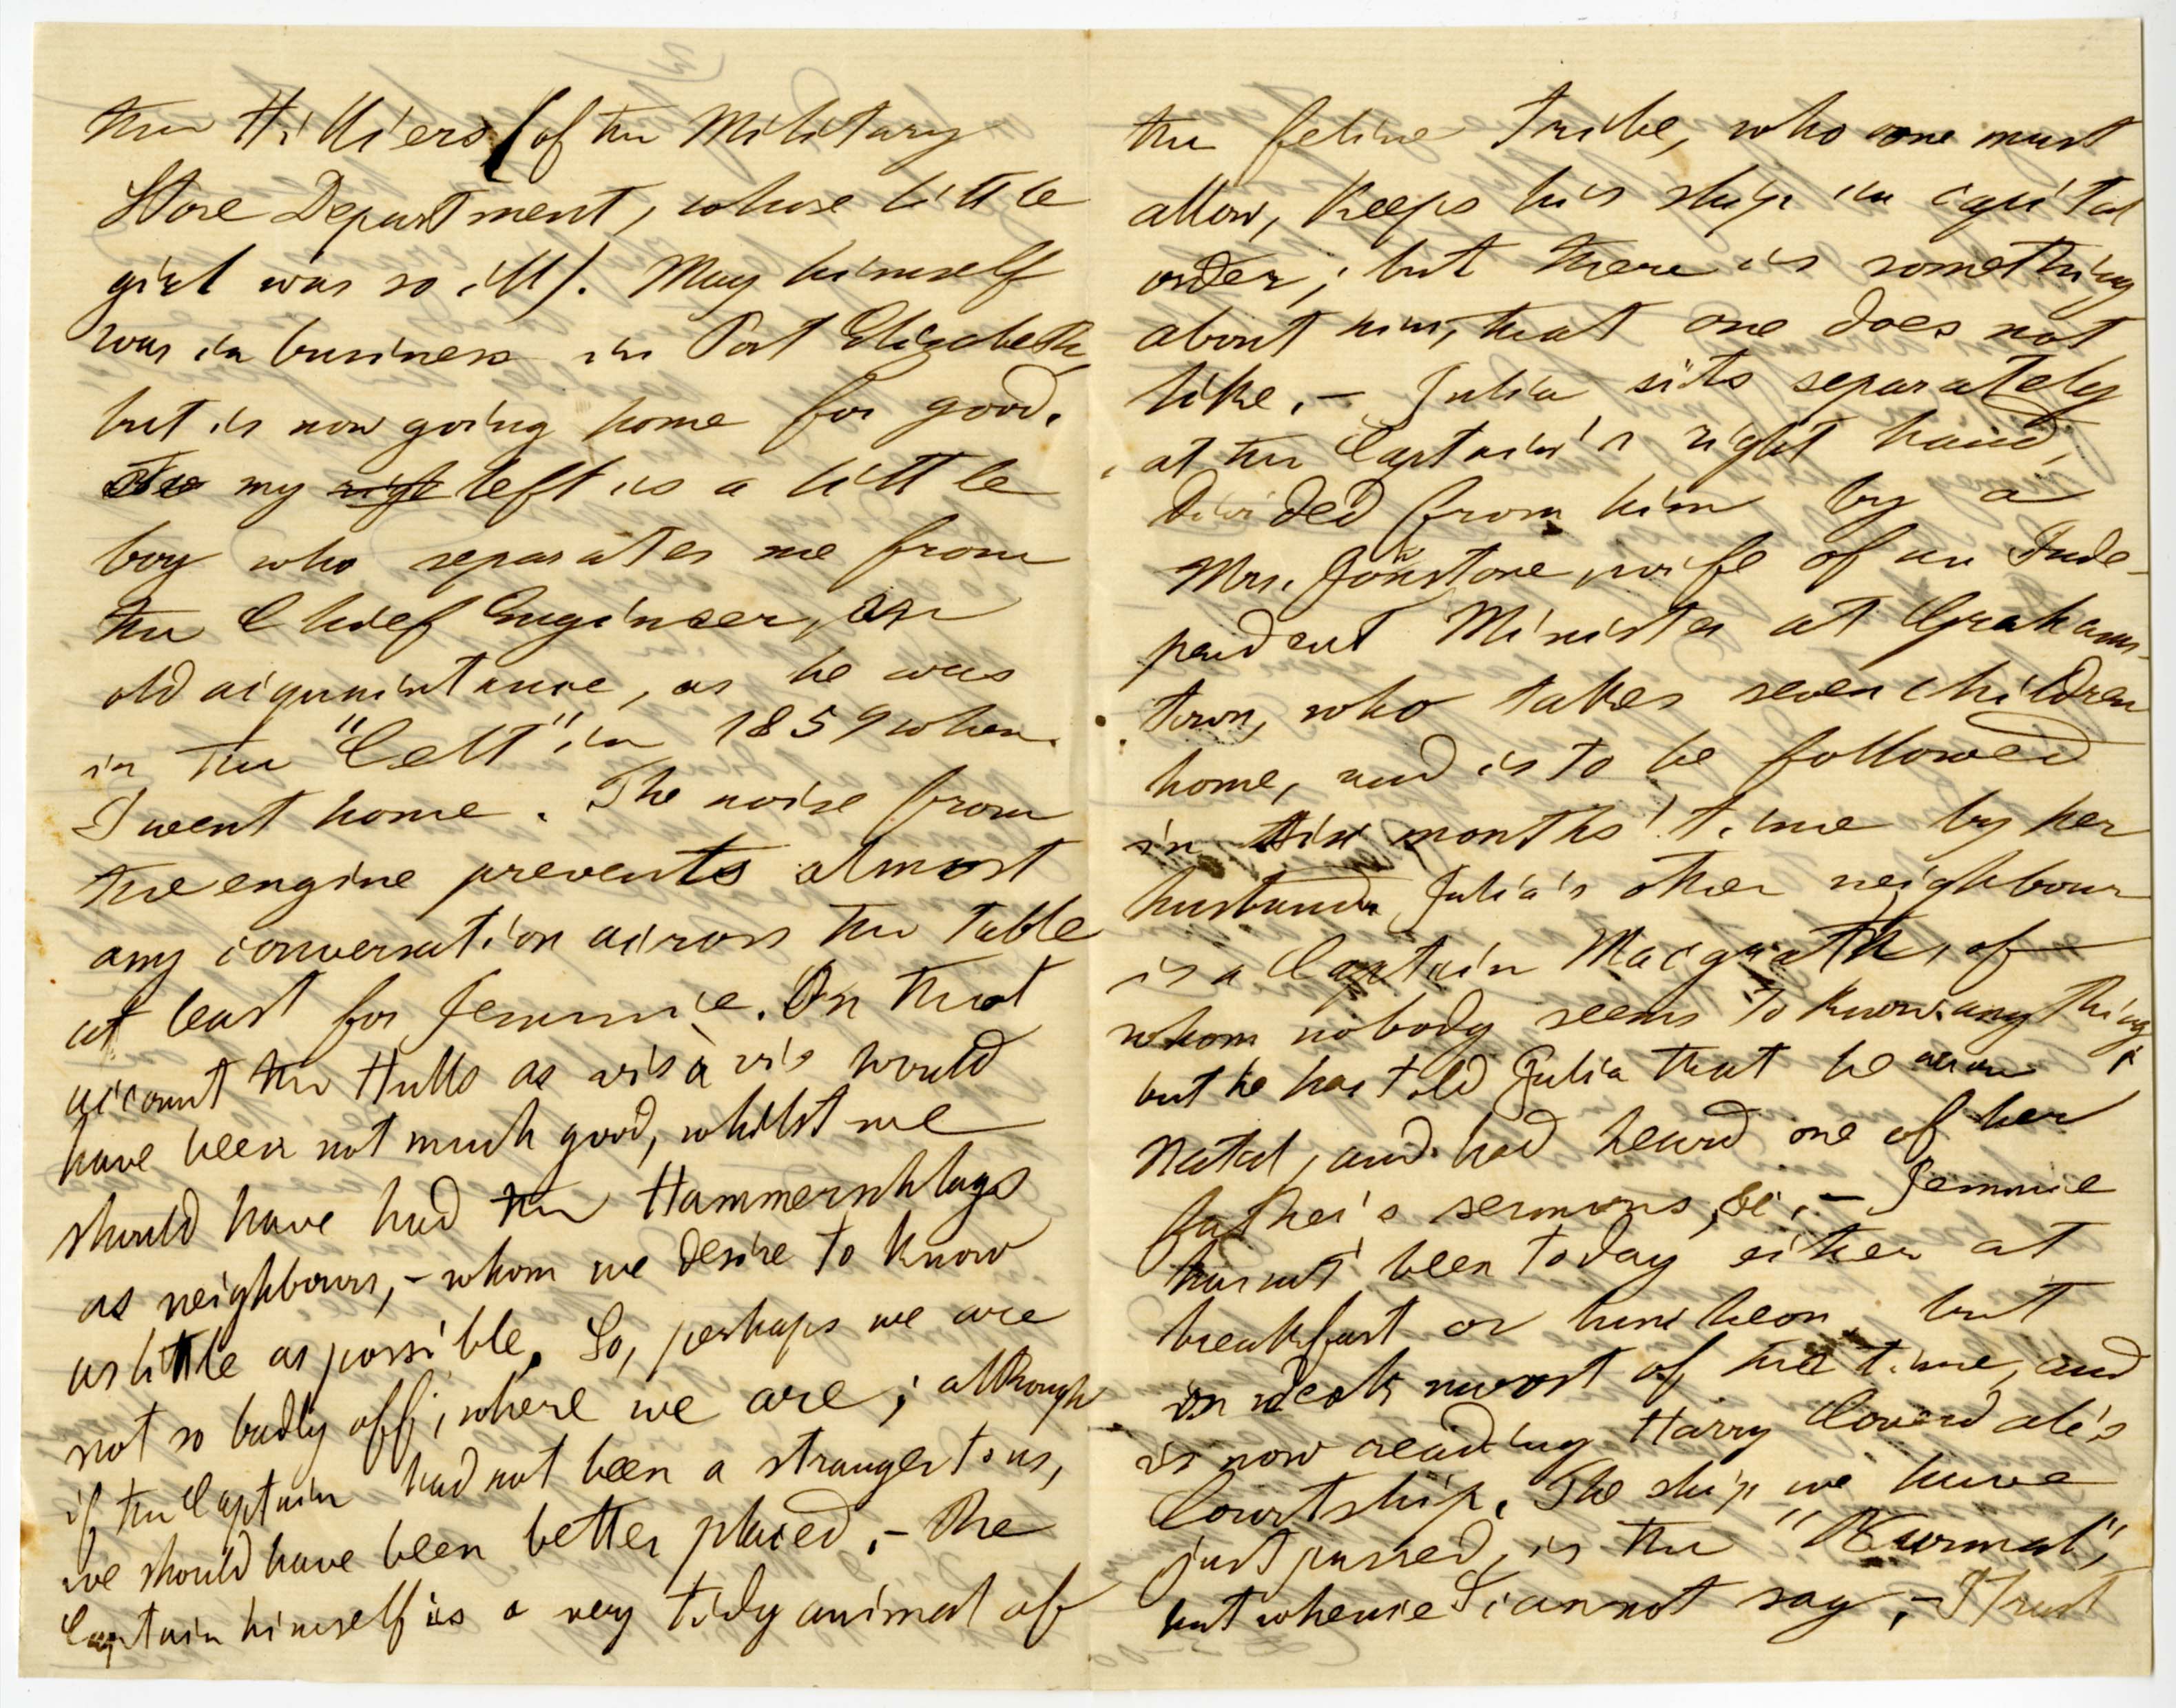 the Hilliers (of the Military
Store Department, whose little
girl was so ill). May himself
was in business in Port Elizabeth,
but is now going home for good.
my left is a little
boy who separates me from
the Chief Engineer, an
old acquaintance, as he was
in the "Celt" in 1859 when
I went home. The noise from
the engine prevents almost
any conversation across the table
at least for Jemmie. On that
account the Hulls as vis à vis would
have been not much good, whilst we
should have had the Hammerschlags
as neighbours, – whom we desire to know
as little as possible. So, perhaps we are
not so badly off, where we are; although
if the Captain had not been a stranger to us,
we should have been better placed. – The
Captain himself is a very tidy animal of
the feline tribe, who one must
allow, keeps his ship in capital
order; but there is something
about him, that one does not
like. – Julia sits separately
at the Captain's right hand,
divided from him by a
Mrs. Johnstone, wife of an Inde-
pendent Minister at Grahams-
town, who takes seven children
home, and is to be followed
in six months' time by her
husband. Julia's other neighbour
is a Captain Macgrath, of
whom nobody seems to know anything;
but he has told Julia that he knows
Natal, and had heard one of her
father's sermons, &c. – Jemmie
has not been today either at
breakfast or luncheon, but
on deck most of the time, and
is now reading Harry Coverdale's
Courtship. The ship we have
just passed, is the "Kurmal",
but whence I cannot say. – I trust